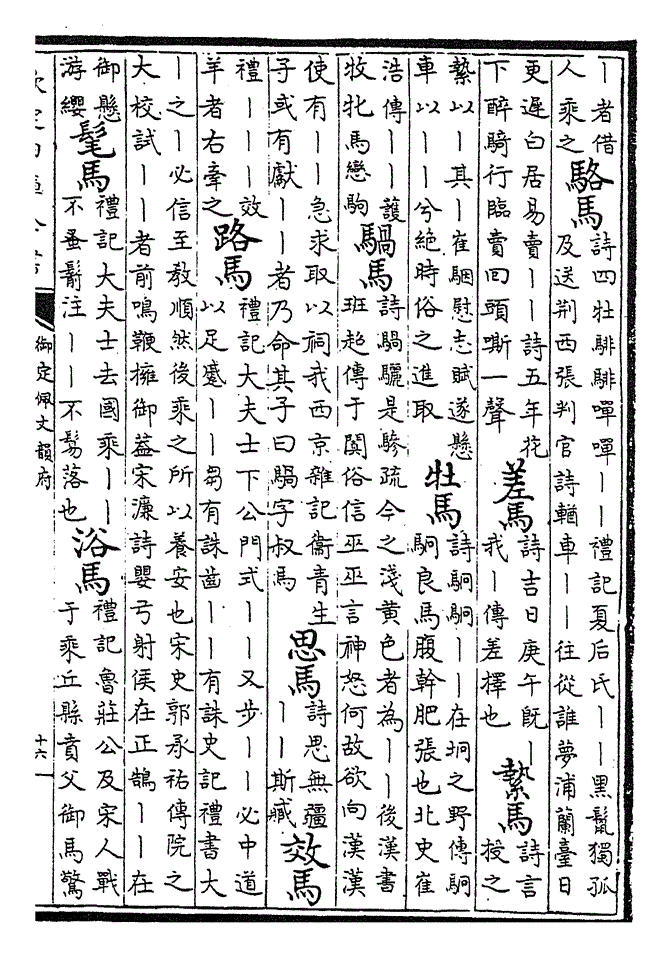 丨者借
人乘之
駱馬
詩四牡騑騑嘽嘽丨丨禮記夏后氏丨丨黑鬣獨孤
及送荆西張判官詩輶車丨丨往從誰夢浦蘭臺日
更遲白居易賣丨丨詩五年花
下醉騎行臨賣回頭嘶一聲
差馬
詩吉日庚午旣丨
我丨傳差擇也
縶馬
詩言
授之
縶以丨其丨崔駰慰志賦遂懸
車以丨丨兮絶時俗之進取
牡馬
詩駉駉丨丨在坰之野傳駉
駉良馬腹幹肥張也北史崔
浩傳丨丨護
牧牝馬戀駒
騧馬
詩騧驪是驂疏今之淺黃色者為丨丨後漢書
班超傳于闐俗信巫巫言神怒何故欲向漢漢
使有丨丨急求取以祠我西京雜記衞青生
子或有獻丨丨者乃命其子曰騧字叔馬
思馬
詩思無疆
丨丨斯臧
效馬
禮丨丨丨效
羊者右牽之
路馬
禮記大夫士下公門式丨丨又步丨丨必中道
以足蹙丨丨芻有誅齒丨丨有誅史記禮書大
丨之丨必信至教順然後乘之所以養安也宋史郭承祐傳院之
大校試丨丨者前鳴鞭擁御葢宋濂詩嬰弓射侯在正鵠丨丨在
御懸
游纓
髦馬
禮記大夫士去國乘丨丨
不蚤鬋注丨丨不鬄落也
浴馬
禮記魯莊公及宋人戰
于乘丘縣賁父御馬驚
御定佩文韻府
十六